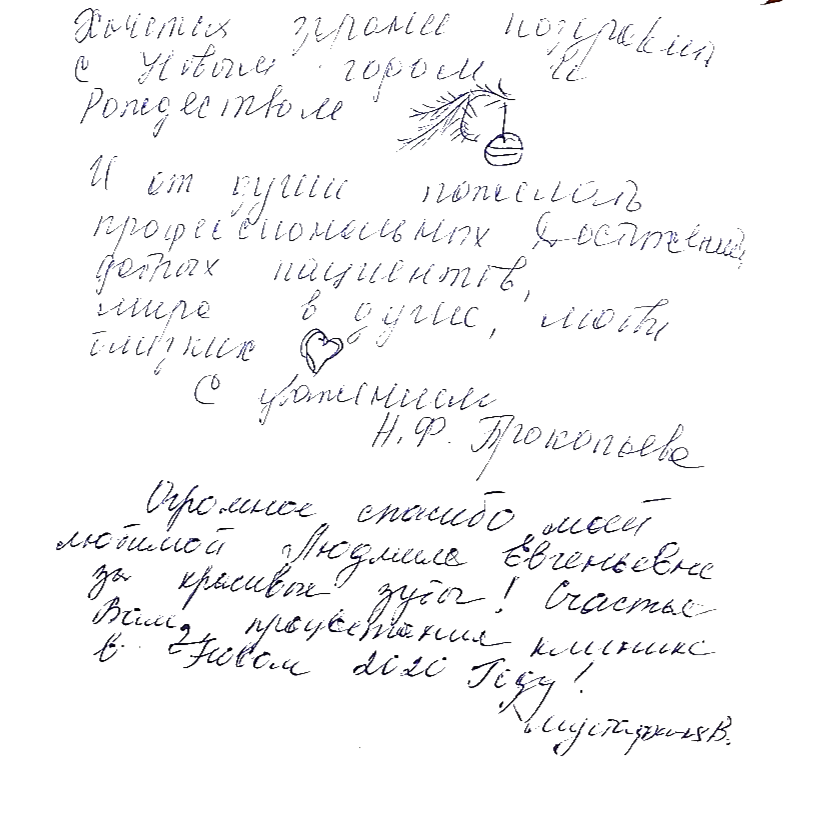 Хочется заранее поздравить
с Новым годом и
Рождеством
И от души пожелать
профессиональных достижений,
добрых пациентов,
мира в душе, любви
близких
С уважением
Н.Ф. Прокопьева
Огромное спасибо моей
любимой Людмиле Евгеньевне
за красивые зубы! Счастье
Вам, процветания клинике
в Новом 2020 Году!
Мустафина В.